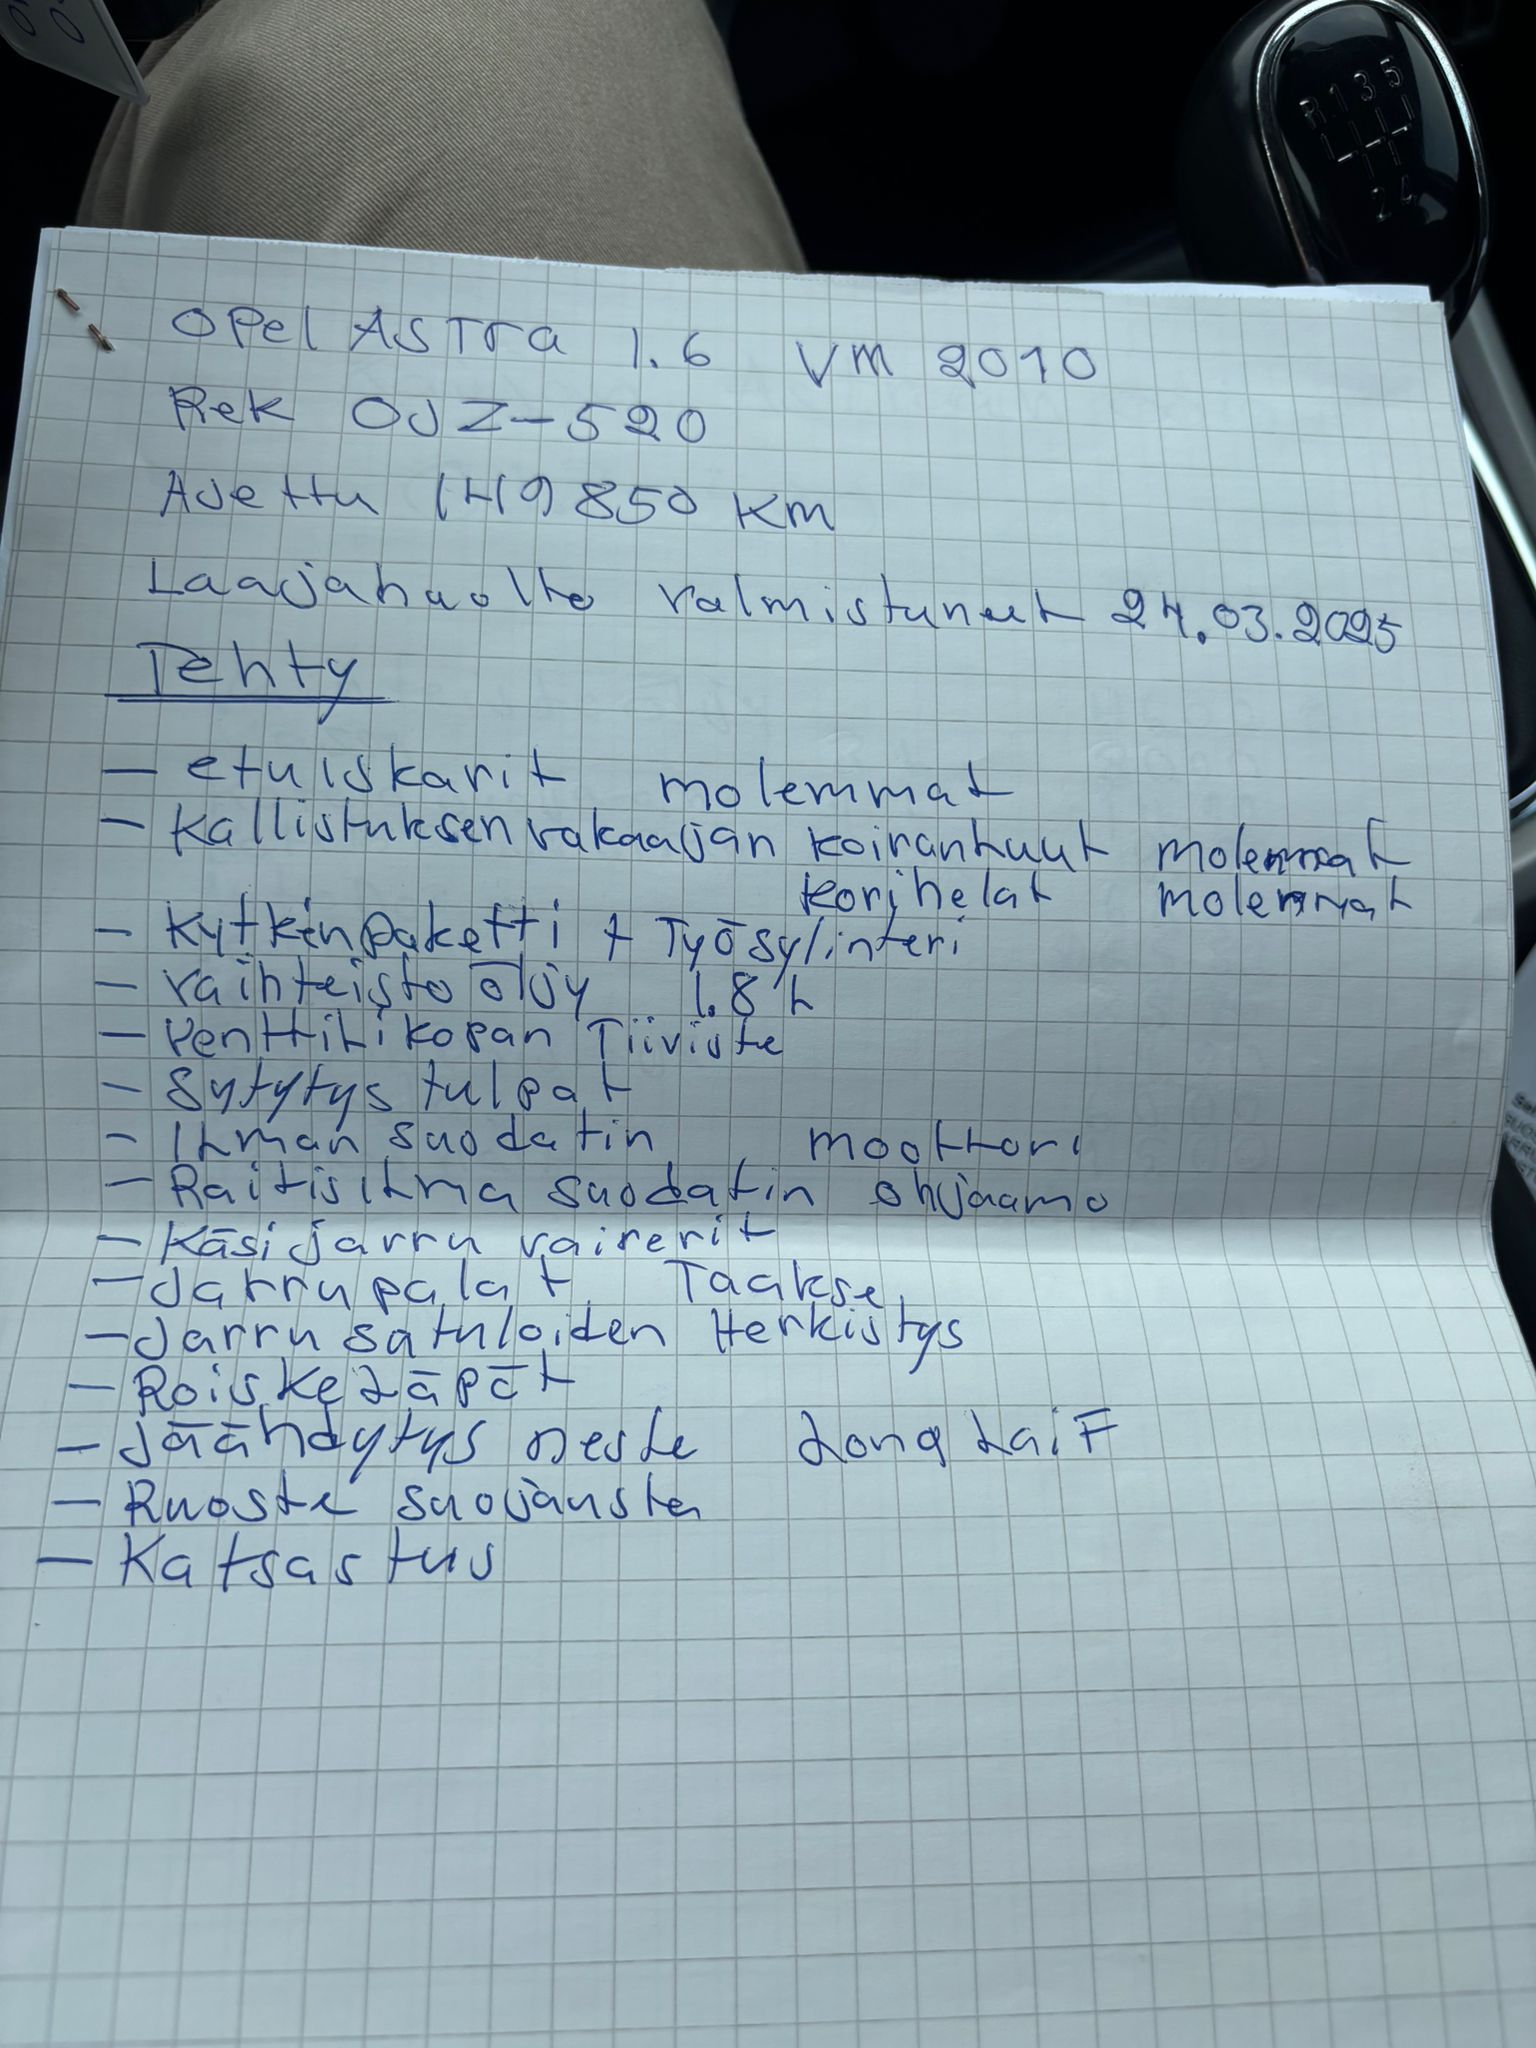 R 1 3 5
2 4
OPel ASTra 1.6 VM 2010
Rek OJZ-520
AJettu 149850 KM
Laajahuolto valmistunut 24.03.2025
Tehty
- etuiskarit molemmat
- Kallistuksenvakaajan koiranluut molemmat
korihelat molemmat
- Kytkinpaketti + Työsylinteri
- vaihteisto öljy 1.8 L
- Venttiilikopan Tiiviste
- Sytytys tulpat
- Ilman suodatin moottori
- Raitisilma suodatin ohjaamo
- Käsijarru vaijerit
- Jarrupalat Taakse
- Jarru satuloiden Herkistys
- Roiskeläpät
- Jäähdytys neste LongLaiF
- Ruoste suojausta
- Katsastus